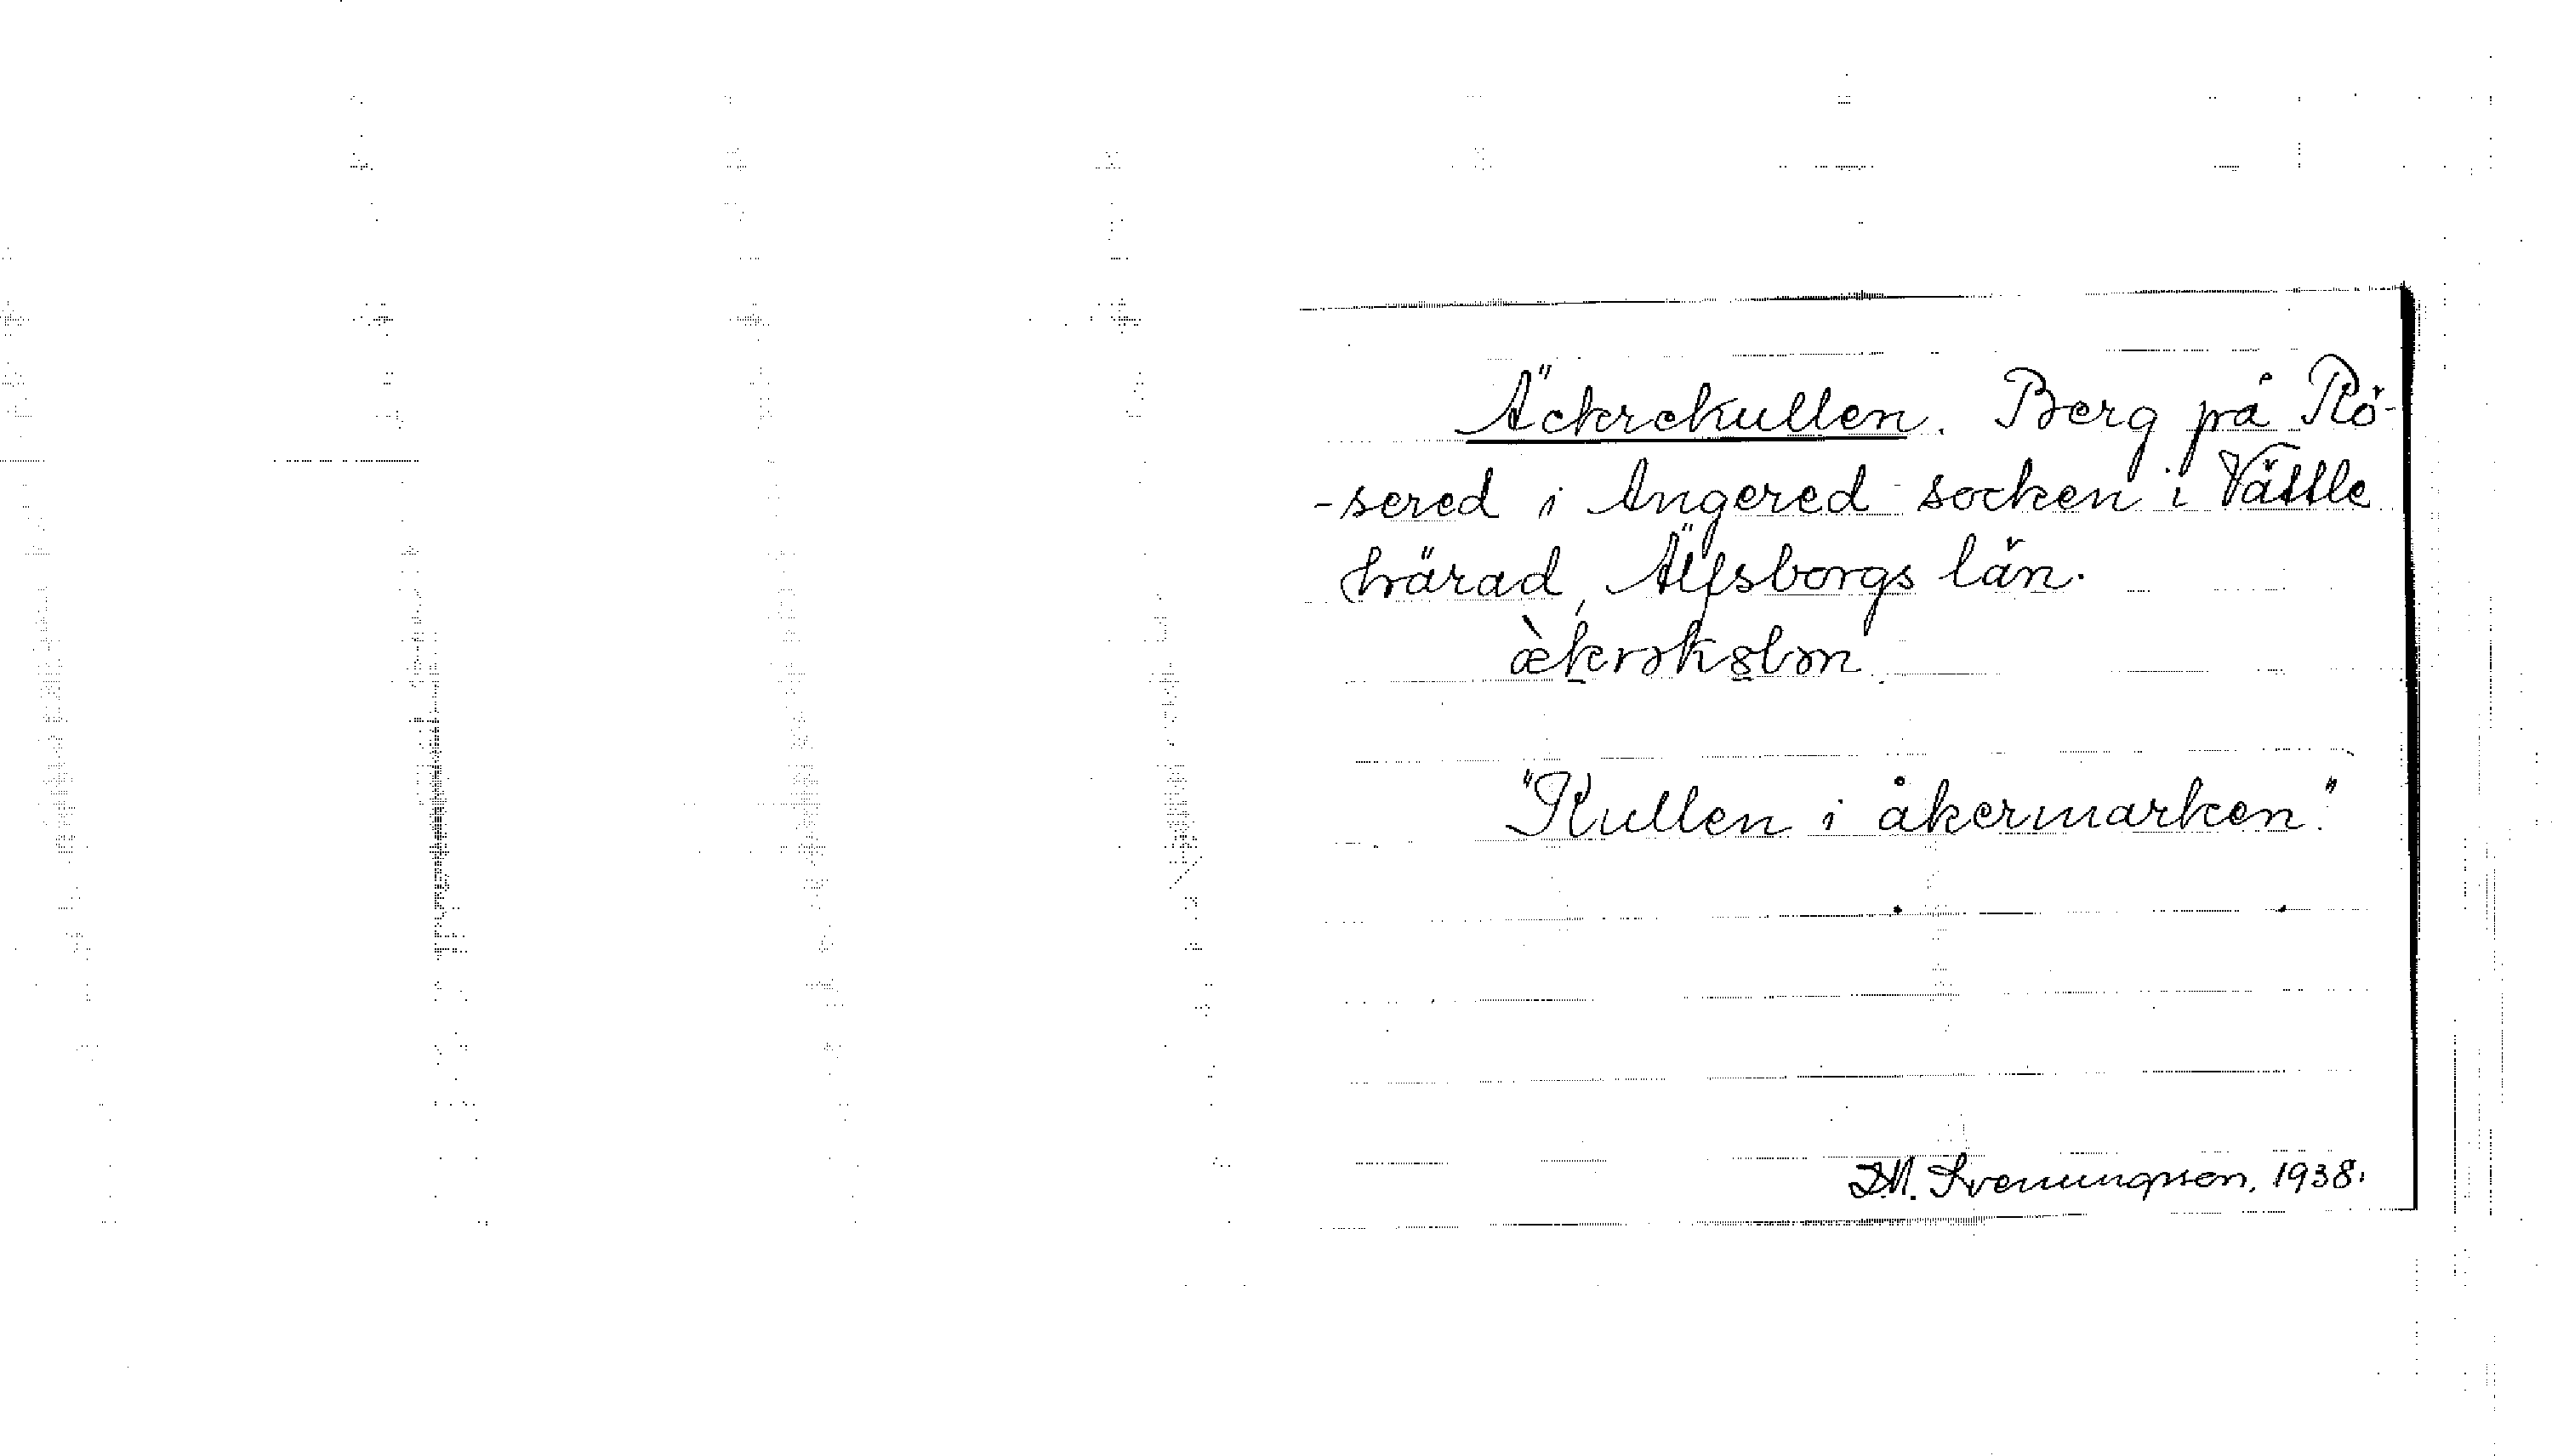 Äckrekullen. Berg på Rö-
-sered i Angered socken i Vättle
härad, Älfsborgs län.
"Kullen i åkermarken."
D.M. Svenungsson, 1938.